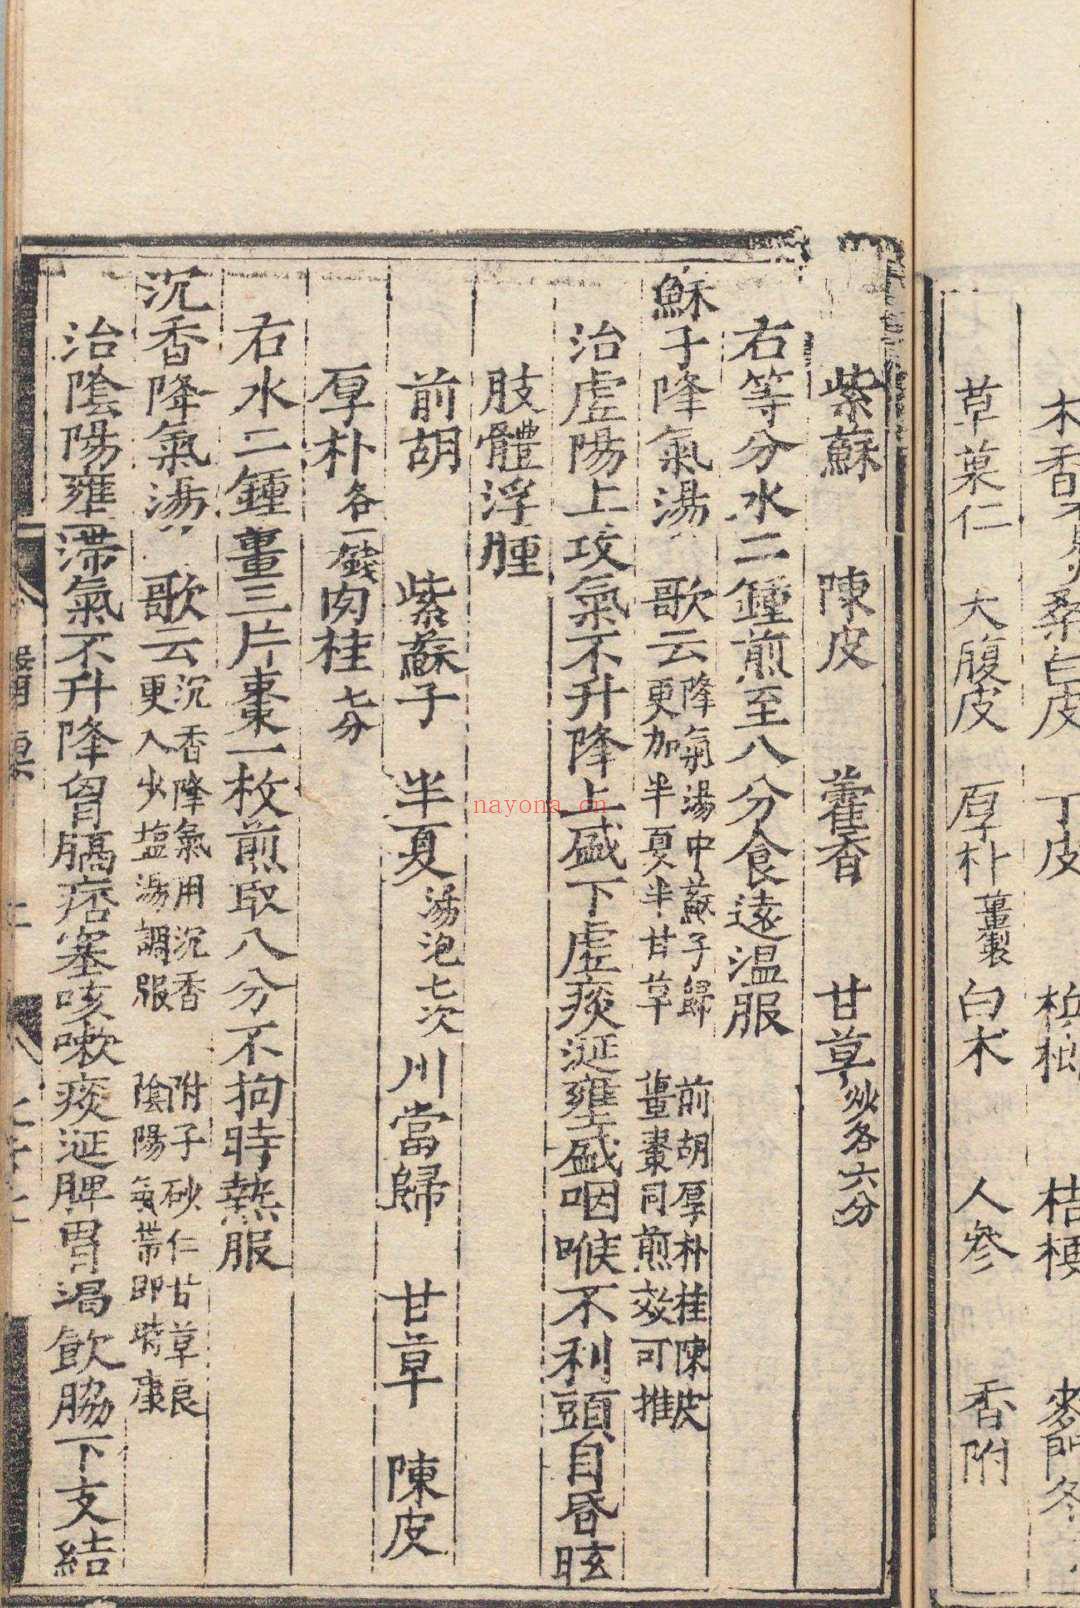 木香 桑白皮 丁皮 檳榔 桔梗 麥門冬
草菓仁 大腹皮 厚朴薑製 白术 人參 香附
紫蘇 陳皮 藿香 甘草炒各六分
右等分水二鍾煎至八分食遠温服
蘇子降氣湯 歌云降氣湯中蘇子歸 前胡厚朴桂陳皮
更加半夏半甘草 薑棗同煎效可推
治虛陽上攻氣不升降上盛下虛痰涎壅盛咽喉不利頭目昏眩
肢體浮腫
前胡 紫蘇子 半夏湯泡七次 川當歸 甘草 陳皮
厚朴各一錢 肉桂七分
右水二鍾薑三片棗一枚煎取八分不拘時熱服
沉香降氣湯 歌云沉香降氣用沉香 附子砂仁甘草良
更入少塩湯調服 陰陽氣滯即時康
治陰陽壅滯氣不升降胷膈痞塞咳嗽痰涎脾胃渴飲脇下支結
nayona.cn